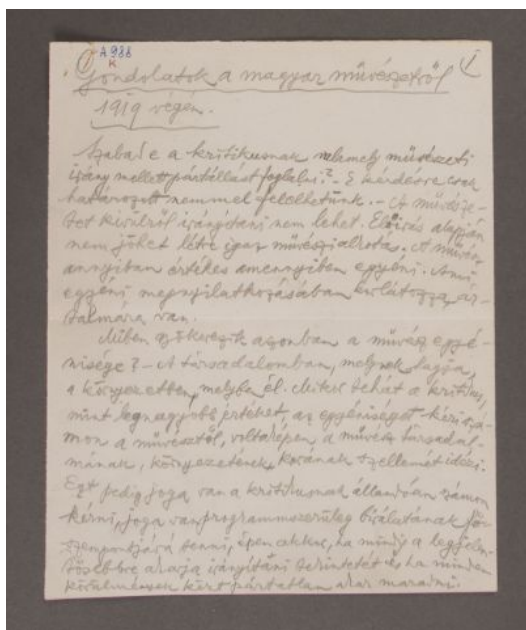 A 988
K
1
Gondolatok a magyar művészetről
1919 végén.
Szabad e a kritikusnak valamely művészeti
irány mellett pártállást foglalni? – E kérdésre csak
határozott nemmel felelhetünk. – A művésze-
tet kívülről irányítani nem lehet. Előirás alapján
nem jöhet létre igaz művészi alkotás. A művész
annyiban értékes amennyiben egyéni. Ami
egyéni megnyilatkozásában korlátozza, ár-
talmára van.
Miben gyökerezik azonban a művész egyé-
nisége? – A társadalomban, melynek tagja,
a környezetben, melyben él. Mikor tehát a kritikus,
mint legnagyobb értéket, az egyéniséget kéri szá-
mon a művésztől, voltaképen a művész társadal-
mának, környezetének, korának szellemét idézi.
Ezt pedig joga van a kritikusnak állandóan számon
kérni, joga van programmszerűleg bírálatának fő-
szempontjává tenni, épen akkor, ha mindig a legjelen-
tősebbre akarja irányítani tekintetét és ha minden
körülmények közt pártatlan akar maradni.